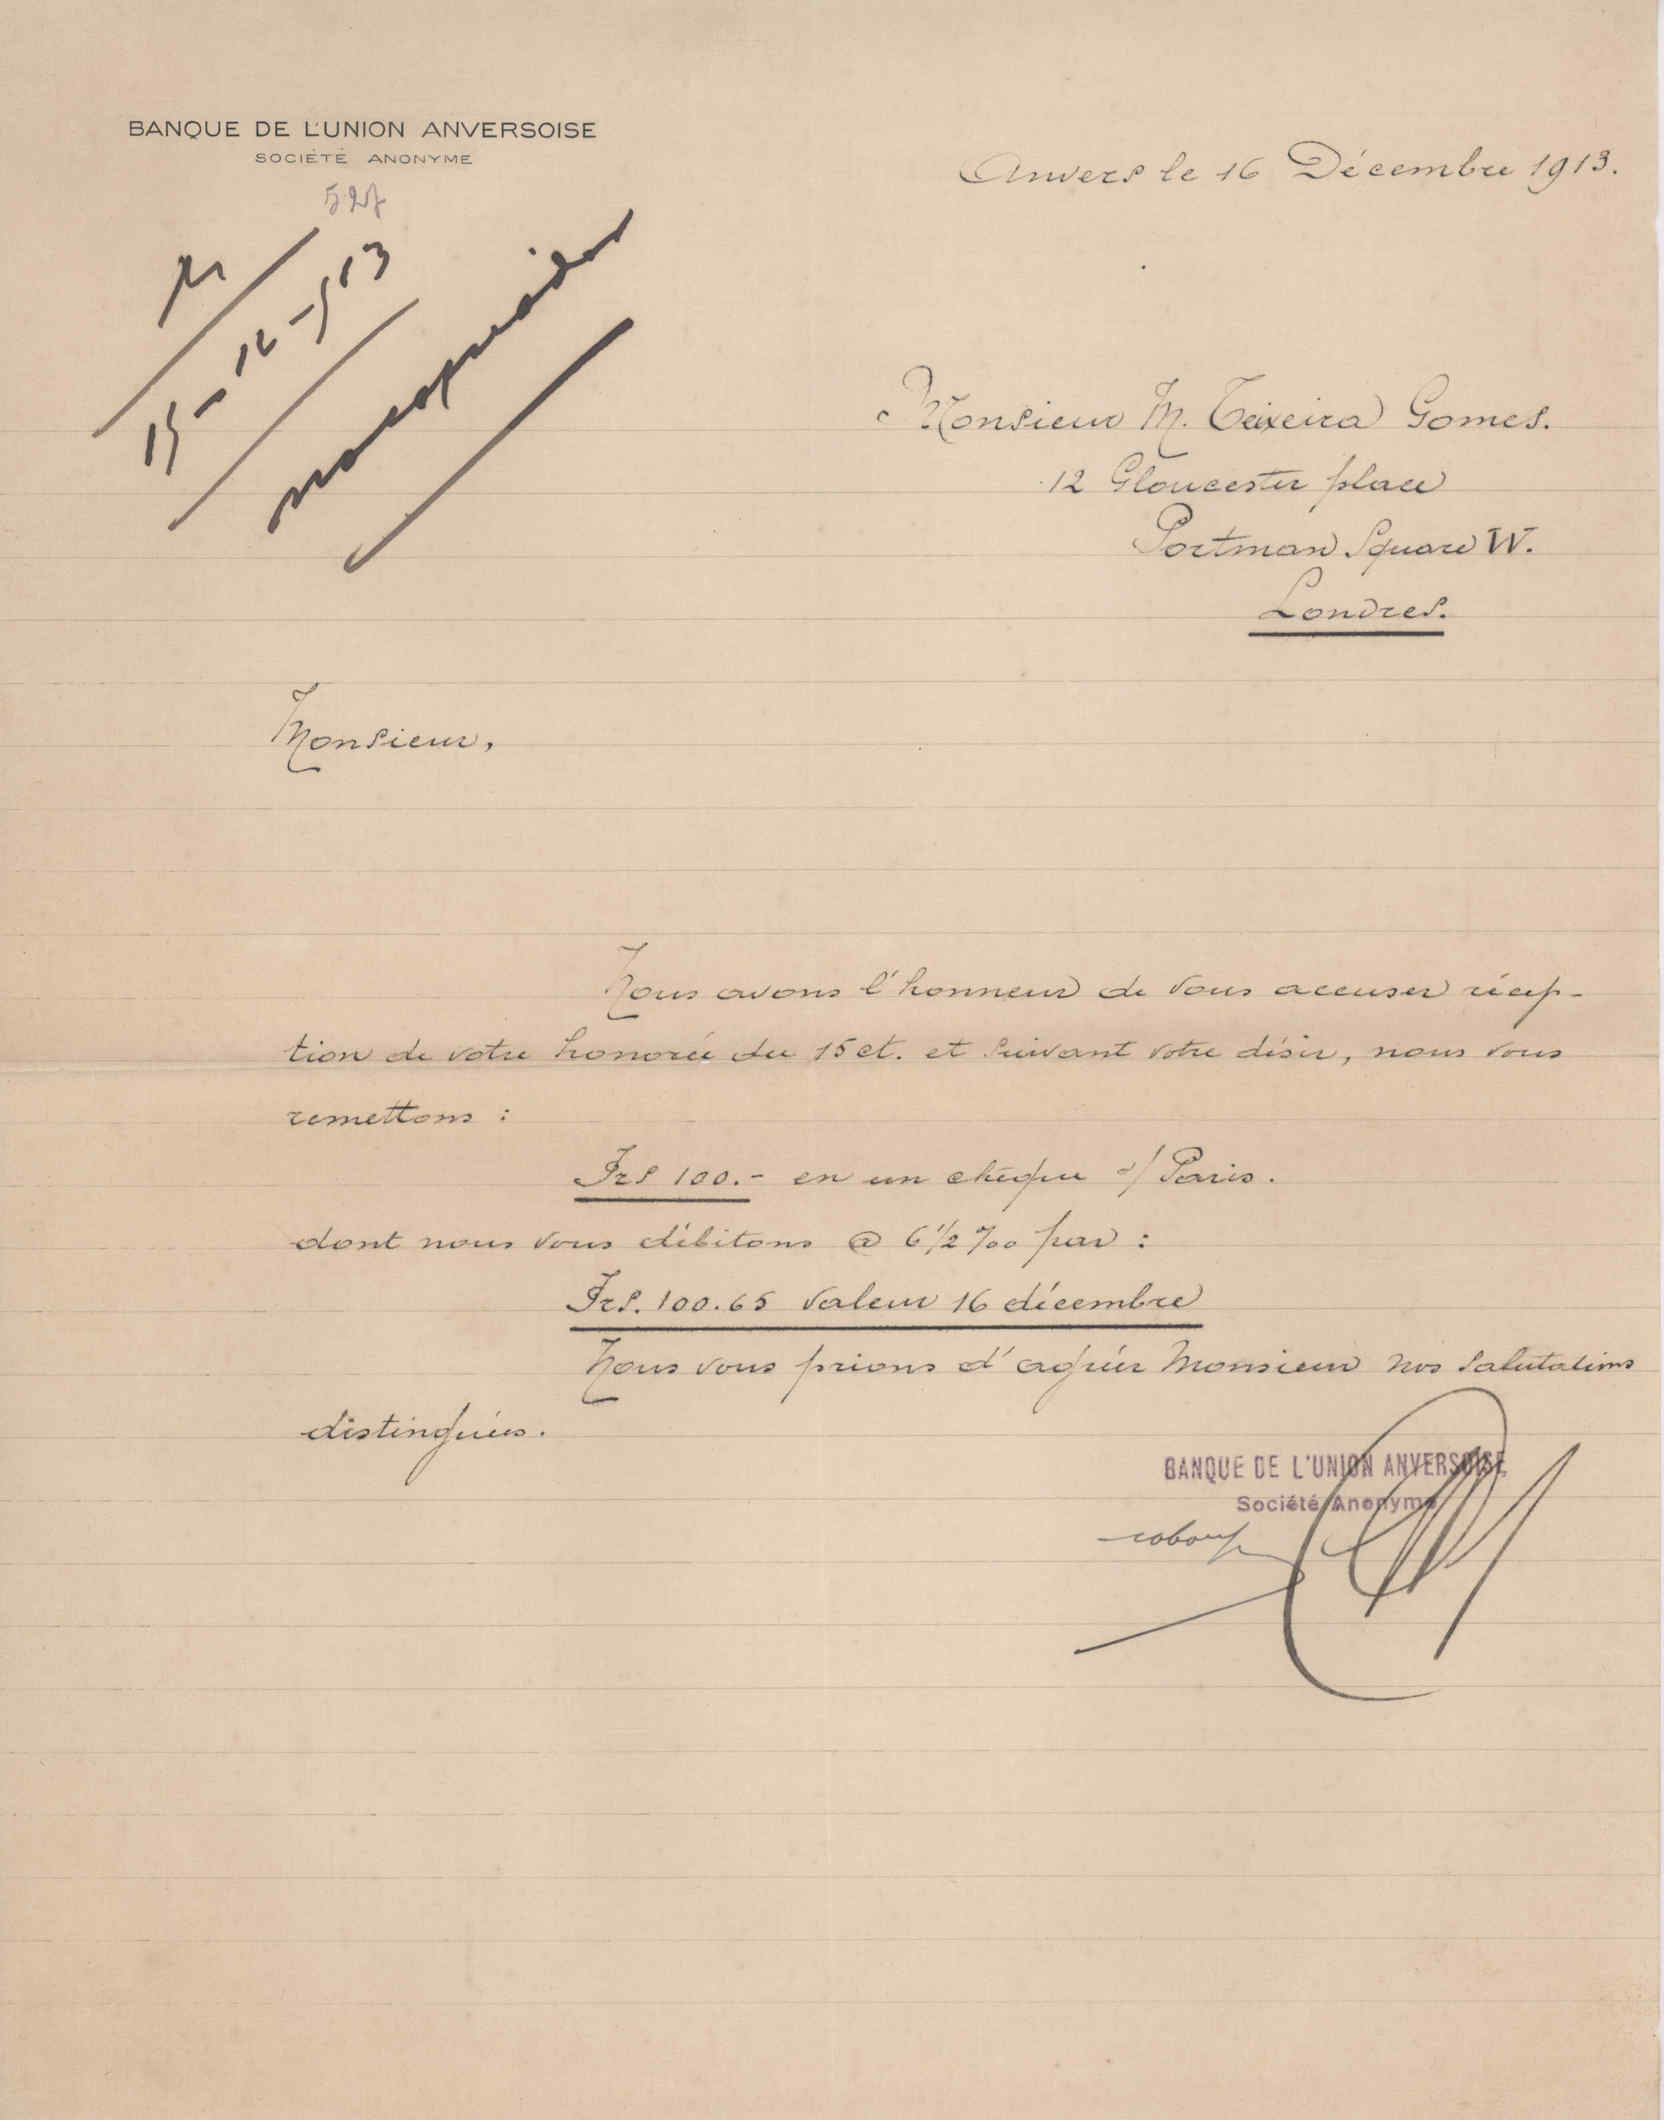 BANQUE DE L'UNION ANVERSOISE
SOCIÉTÉ ANONYME
Anvers le 16 Décembre 1913.
Monsieur M. Teixeira Gomes.
12 Gloucester place
Portman Square W.
Londres.
Monsieur,
Nous avons l'honneur de vous accuser récep-
tion de votre honorée du 15 ct. et suivant votre désir, nous vous
remettons :
Frs 100.- en un chèque s/ Paris.
dont nous vous débitons @ 6 1/2 ‰ par :
Frs. 100.65 valeur 16 décembre
Nous vous prions d'agréer Monsieur nos salutations
distinguées.
BANQUE DE L'UNION ANVERSOISE
Société Anonyme